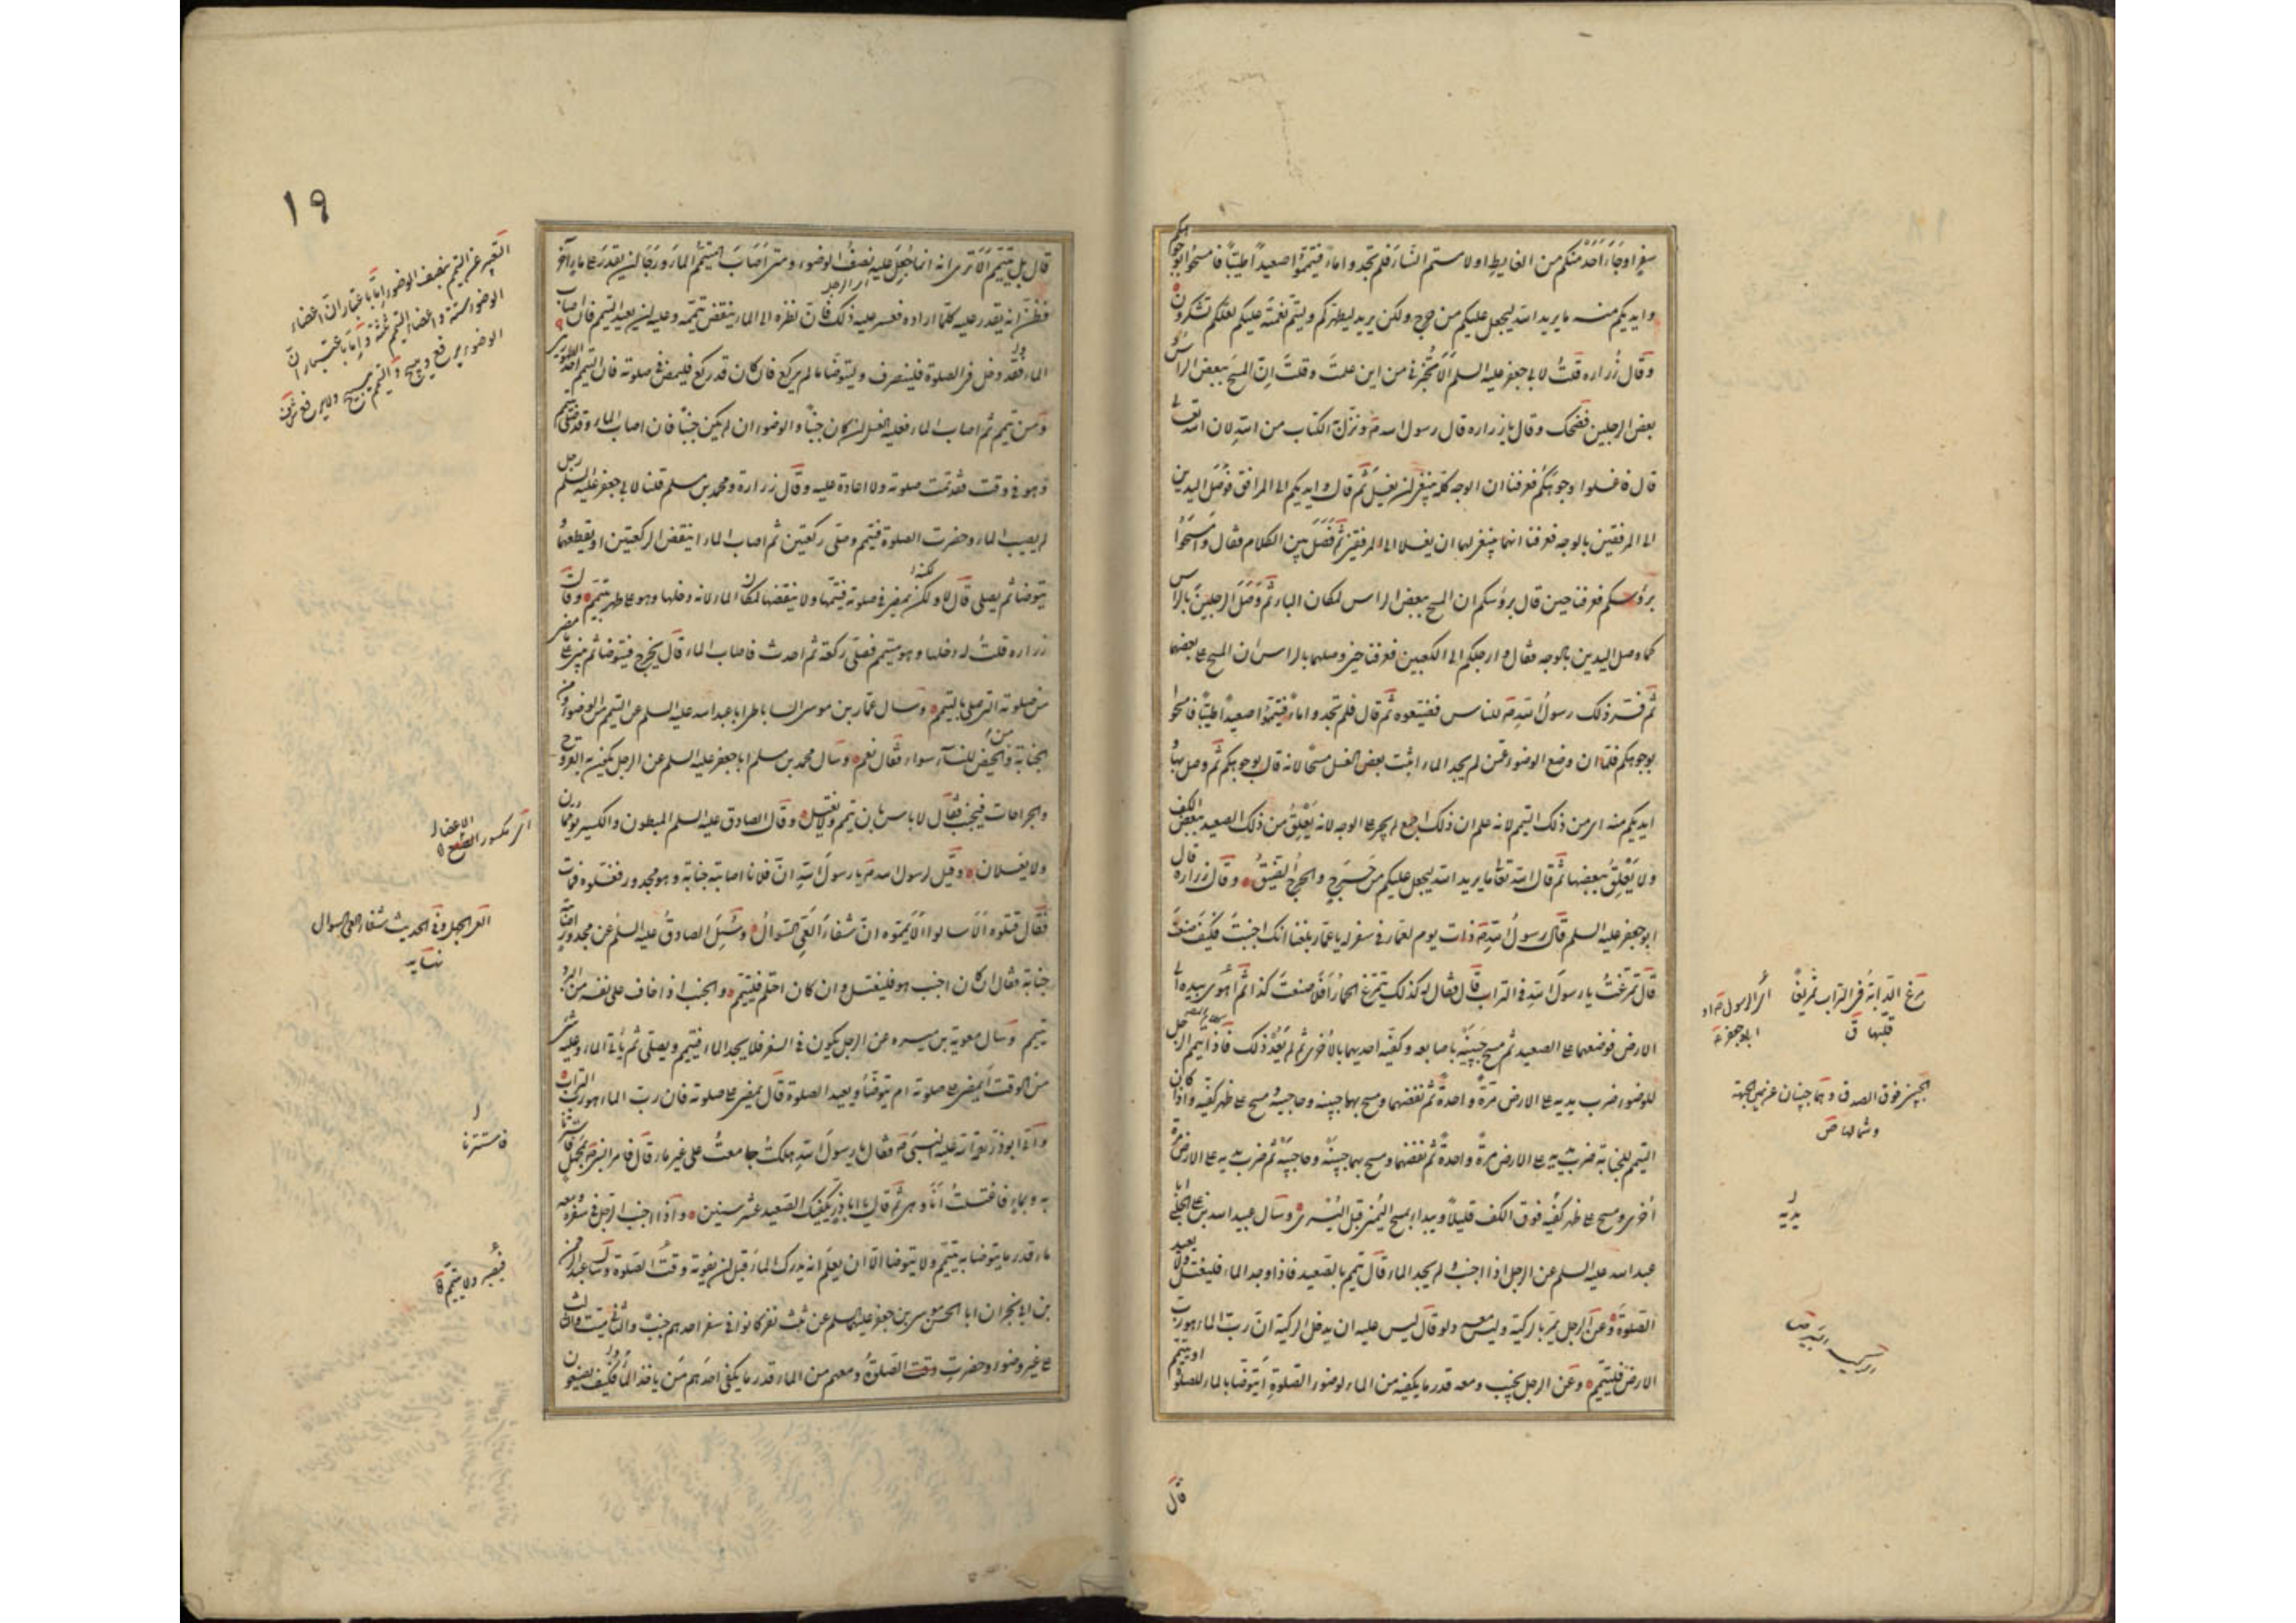 سفر او جاء احد منكم من الغايط او لامستم النساء فلم تجدوا ماء فتيمموا صعيدا طيبا فامسحوا بوجوهكم
وايديكم منه ما يريد الله ليجعل عليكم من حرج ولكن يريد ليطهركم وليتم نعمته عليكم لعلكم تشكرون
وقال زراره قلت لابي جعفر عليه السلم الا تخبرني من اين علمت وقلت ان المسح ببعض الراس و
بعض الرجلين فضحك وقال يا زراره قال رسول الله ص ونزل به الكتاب من الله لان الله تعالى
قال فاغسلوا وجوهكم فعرفنا ان الوجه كله ينبغي ان يغسل ثم قال وايديكم الى المرافق فوصل اليدين
الى المرفقين بالوجه فعرفنا انهما ينبغي لهما ان يغسلا الى المرفقين ثم فصل بين الكلام فقال وامسحوا
برؤسكم فعرفنا حين قال برؤسكم ان المسح ببعض الراس لمكان الباء ثم وصل الرجلين بالراس
كما وصل اليدين بالوجه فقال وارجلكم الى الكعبين فعرفنا حين وصلهما بالراس ان المسح على بعضهما
ثم فسر ذلك رسول الله ص للناس فضيعوه ثم قال فلم تجدوا ماء فتيمموا صعيدا طيبا فامسحوا
بوجوهكم فلما ان وضع الوضوء عمن لم يجد الماء اثبت بعض الغسل مسحا لانه قال بوجوهكم ثم وصل بها
ايديكم منه اي من ذلك التيمم لانه علم ان ذلك اجمع لم يجر على الوجه لانه يعلق من ذلك الصعيد ببعض الكف
ولا يعلق ببعضها ثم قال الله تعالى ما يريد الله ليجعل عليكم من حرج والحرج الضيق وقال زراره قال
ابو جعفر عليه السلم قال رسول الله ص ذات يوم لعمار في سفر له يا عمار بلغنا انك اجنبت فكيف صنعت
قال تمرغت يا رسول الله في التراب قال فقال له كذلك يتمرغ الحمار افلا صنعت كذا ثم اهوى بيديه الى
الارض فوضعهما على الصعيد ثم مسح جبينيه باصابعه وكفيه احديهما بالاخرى ثم لم يعد ذلك فاذا تيمم الرجل
للوضوء ضرب يديه على الارض مرة واحدة ثم نفضهما ومسح بهما جبينيه وحاجبيه ومسح على ظهر كفيه واذا كان
التيمم للجنابة ضرب يديه على الارض مرة واحدة ثم نفضهما ومسح بهما جبينيه وحاجبيه ثم ضرب يديه على الارض مرة
اخرى ومسح على ظهر كفيه فوق الكف قليلا ويبدا بمسح اليمنى قبل اليسرى وسال عبيد الله بن على الحلبي ابا
عبد الله عليه السلم عن الرجل اذا اجنب ولم يجد الماء قال تيمم بالصعيد فاذا وجد الماء فليغتسل ولا يعيد
الصلوة وعن الرجل يمر بالركية وليس معه دلو قال ليس عليه ان يدخل الركية ان رب الماء هو رب
الارض فليتيمم وعن الرجل يجنب ومعه قدر ما يكفيه من الماء لوضوء الصلوة ايتوضا بالماء للصلوة او يتيمم
قال
مرغ الدابة في التراب تمريغا
قلبها ق
اي الرسول ص او
ابو جعفر ع
الجبين فوق الصدغ وهما جبينان عن يمين الجبهة
وشمالها ص
يديه
١٩
قال بل يتيمم الا ترى انه انما جعل عليه نصف الوضوء ومتى اصاب المتيمم الماء ورجا ان يقدر على ماء آخر
فظن انه يقدر عليه كلما اراده فعسر عليه ذلك فان نظره الى الماء ينقض تيممه وعليه ان يعيد التيمم فان اصاب
الماء وقد دخل في الصلوة فلينصرف وليتوضا ما لم يركع فان كان قد ركع فليمض في صلوته فان التيمم احد الطهورين
ومن تيمم ثم اصاب الماء فعليه الغسل ان كان جنبا والوضوء ان لم يكن جنبا فان اصاب الماء وقد صلى بتيمم
وهو في وقت فقد تمت صلوته ولا اعادة عليه وقال زرارة ومحمد بن مسلم قلنا لابي جعفر عليه السلم رجل
لم يصب الماء وحضرت الصلوة فتيمم وصلى ركعتين ثم اصاب الماء اينقض الركعتين او يقطعهما
ويتوضا ثم يصلى قال لا ولكنه يمضي في صلوته فيتمها ولا ينقضها لمكان الماء لانه دخلها وهو على طهر بتيمم وقال
زراره قلت له دخلها وهو متيمم فصلى ركعة ثم احدث فاصاب الماء قال يخرج فيتوضا ثم يبني على ما مضى
من صلوته التي صلى بالتيمم وسال عمار بن موسى الساباطي ابا عبد الله عليه السلم عن التيمم من الوضوء ومن
الجنابة ومن الحيض للنساء سواء فقال نعم وسال محمد بن مسلم ابا جعفر عليه السلم عن الرجل يكون به القروح
والجراحات فيجنب فقال لا باس بان يتيمم ولا يغتسل وقال الصادق عليه السلم المبطون والكسير يؤممان
ولا يغسلان وقيل لرسول الله ص يا رسول الله ان فلانا اصابته جنابة وهو مجدور فغسلوه فمات
فقال قتلوه الا سالوا الا يمموه ان شفاء العي السؤال وسئل الصادق عليه السلم عن مجدور اصابته
جنابة فقال ان كان اجنب هو فليغتسل وان كان احتلم فليتيمم والجنب اذا خاف على نفسه من البرد
تيمم وسال معوية بن ميسره عن الرجل يكون في السفر فلا يجد الماء فيتيمم ويصلى ثم ياتي الماء وعليه شيء
من الوقت ايمضي على صلوته ام يتوضا ويعيد الصلوة قال يمضي على صلوته فان رب الماء هو رب التراب
واتى ابو ذر رحمة الله عليه النبي ص فقال يا رسول الله هلكت جامعت على غير ماء قال فامر النبي ص بمحمل فاستترنا
به وبماء فاغتسلت انا وهي ثم قال يا ابا ذر يكفيك الصعيد عشر سنين واذا اجنب الرجل في سفر ومعه
ماء قدر ما يتوضا به تيمم ولا يتوضا الا ان يعلم انه يدرك الماء قبل ان يفوته وقت الصلوة وسال عبد الرحمن
بن ابي نجران ابا الحسن موسى بن جعفر عليهما السلم عن ثلثة نفر كانوا في سفر احدهم جنب والثاني ميت والثالث
على غير وضوء وحضرت وقت الصلوة ومعهم من الماء قدر ما يكفي احدهم من ياخذ الماء وكيف يصنعون
التعبير عن التيمم بنصف الوضوء اما باعتبار ان اعضاء
الوضوء ستة واعضاء التيمم ثلثة واما باعتبار ان
الوضوء
اي مكسور الاعضاء
العي الجهل وفي الحديث شفاء العي السؤال
نهايه
فاستترنا